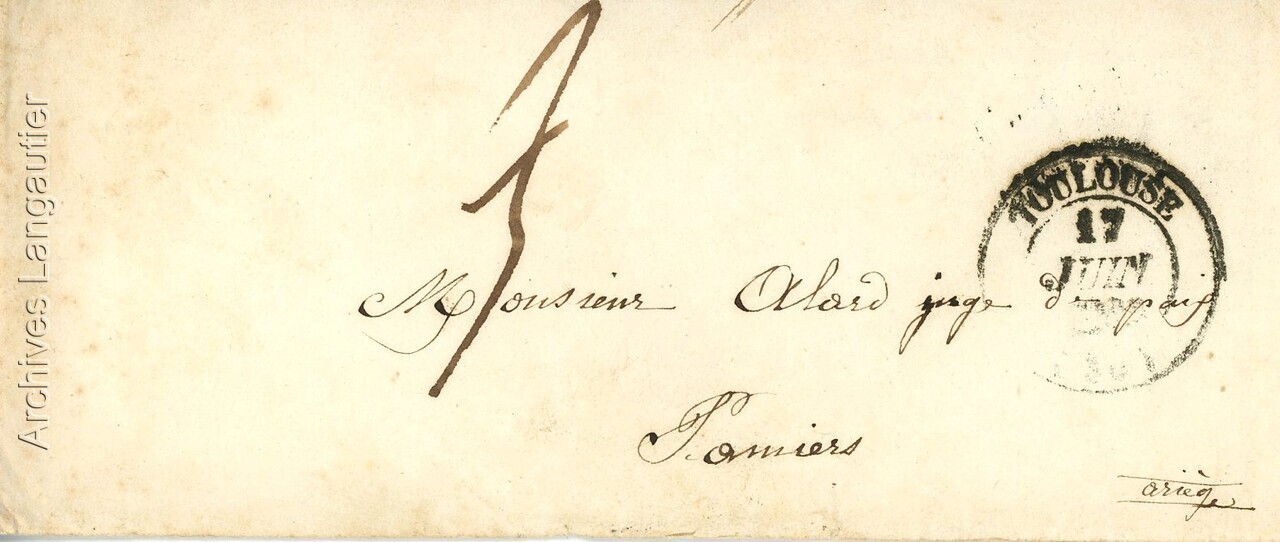 Archives Langautier
TOULOUSE
17
JUIN
Monsieur Alard juge de paix
Pamiers
ariège